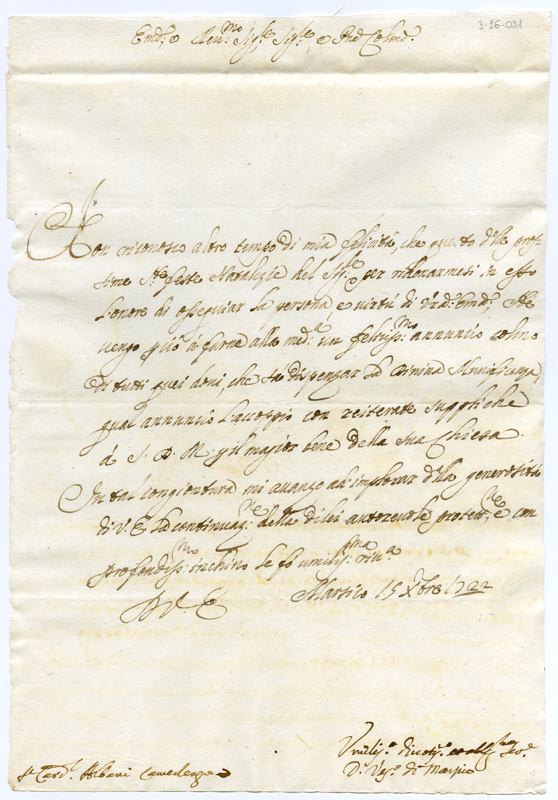 3-26-031
Em.o e Rev.mo Sig.re Sig.re, e Pad. Colmo.
Non riconosco altro tempo di mia felicità, che questo delle pross-
ime S.te feste Natalizie del Sig.re per richiamarmesi in esse
l'onore di ossequiar la persona, e virtù di V.ra Em.
vengo p ciò a farne alla med.a un feliciss.mo annuncio colmo
di tutti quei doni, che sà dispensar la Divina Munificenza,
qual annuncio l'accoppio con reiterate suppliche
à S. D. M. p il magior bene della sua Chiesa.
In tal congiontura mi avanzo ad implorar dalla generosità
di V. E. la continuaz.ne della di lei autorevole protett.ne, e con
profondiss.mo inchino le fo umiliss.ma riv.a
D V. E.
Marsico 15 Xbre 1722
Umiliss.o
D. Ves.o di Marsico
S.r Card. Albani Camerlengo